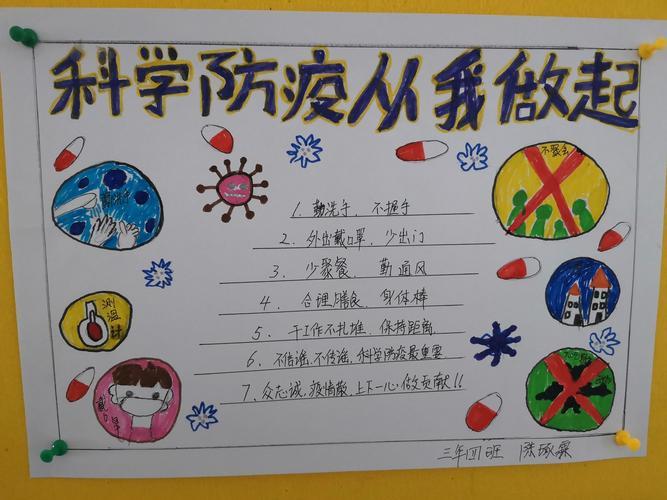 科学防疫从我做起
勤洗手
不聚会
1、勤洗手、不握手
2、外出戴口罩、少出门
3、少聚餐、勤通风
4、合理膳食、身体棒
测温计
5、干工作不扎堆、保持距离
6、不信谣、不传谣、科学防疫最重要
7、众志诚,疫情散,上下一心做贡献!!
戴口罩
三年四班